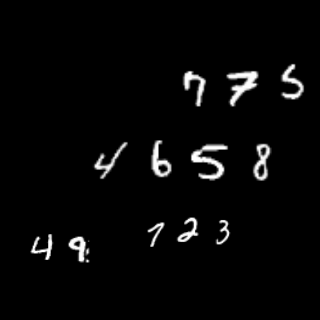 775
4658
49 123